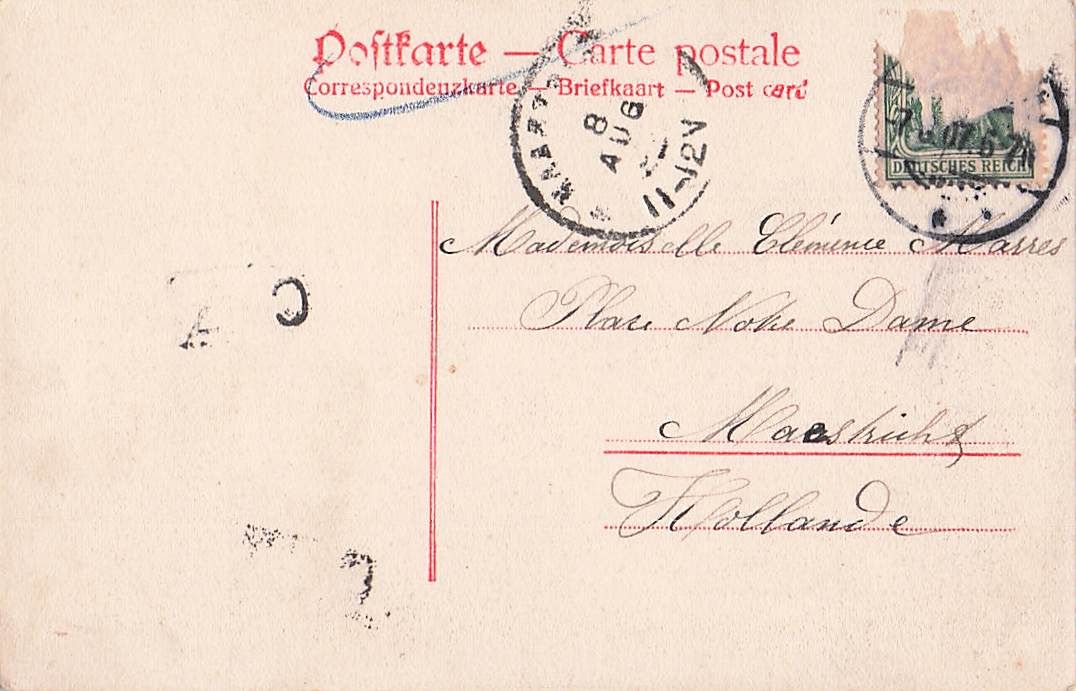 Postkarte — Carte postale
Correspondenzkarte — Briefkaart — Post card
8
AUG
11-12V
DEUTSCHES REICH
Mademoiselle Clémence Marres
Place Notre Dame
Maestricht
Hollande